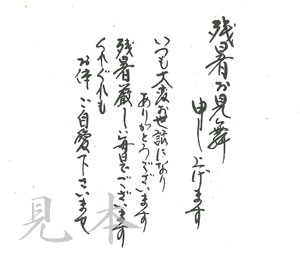 残暑お見舞
申し上げます
いつも大変お世話になり
ありがとうございます
残暑厳しい毎日でございます
くれぐれも
お体ご自愛下さいませ
見本